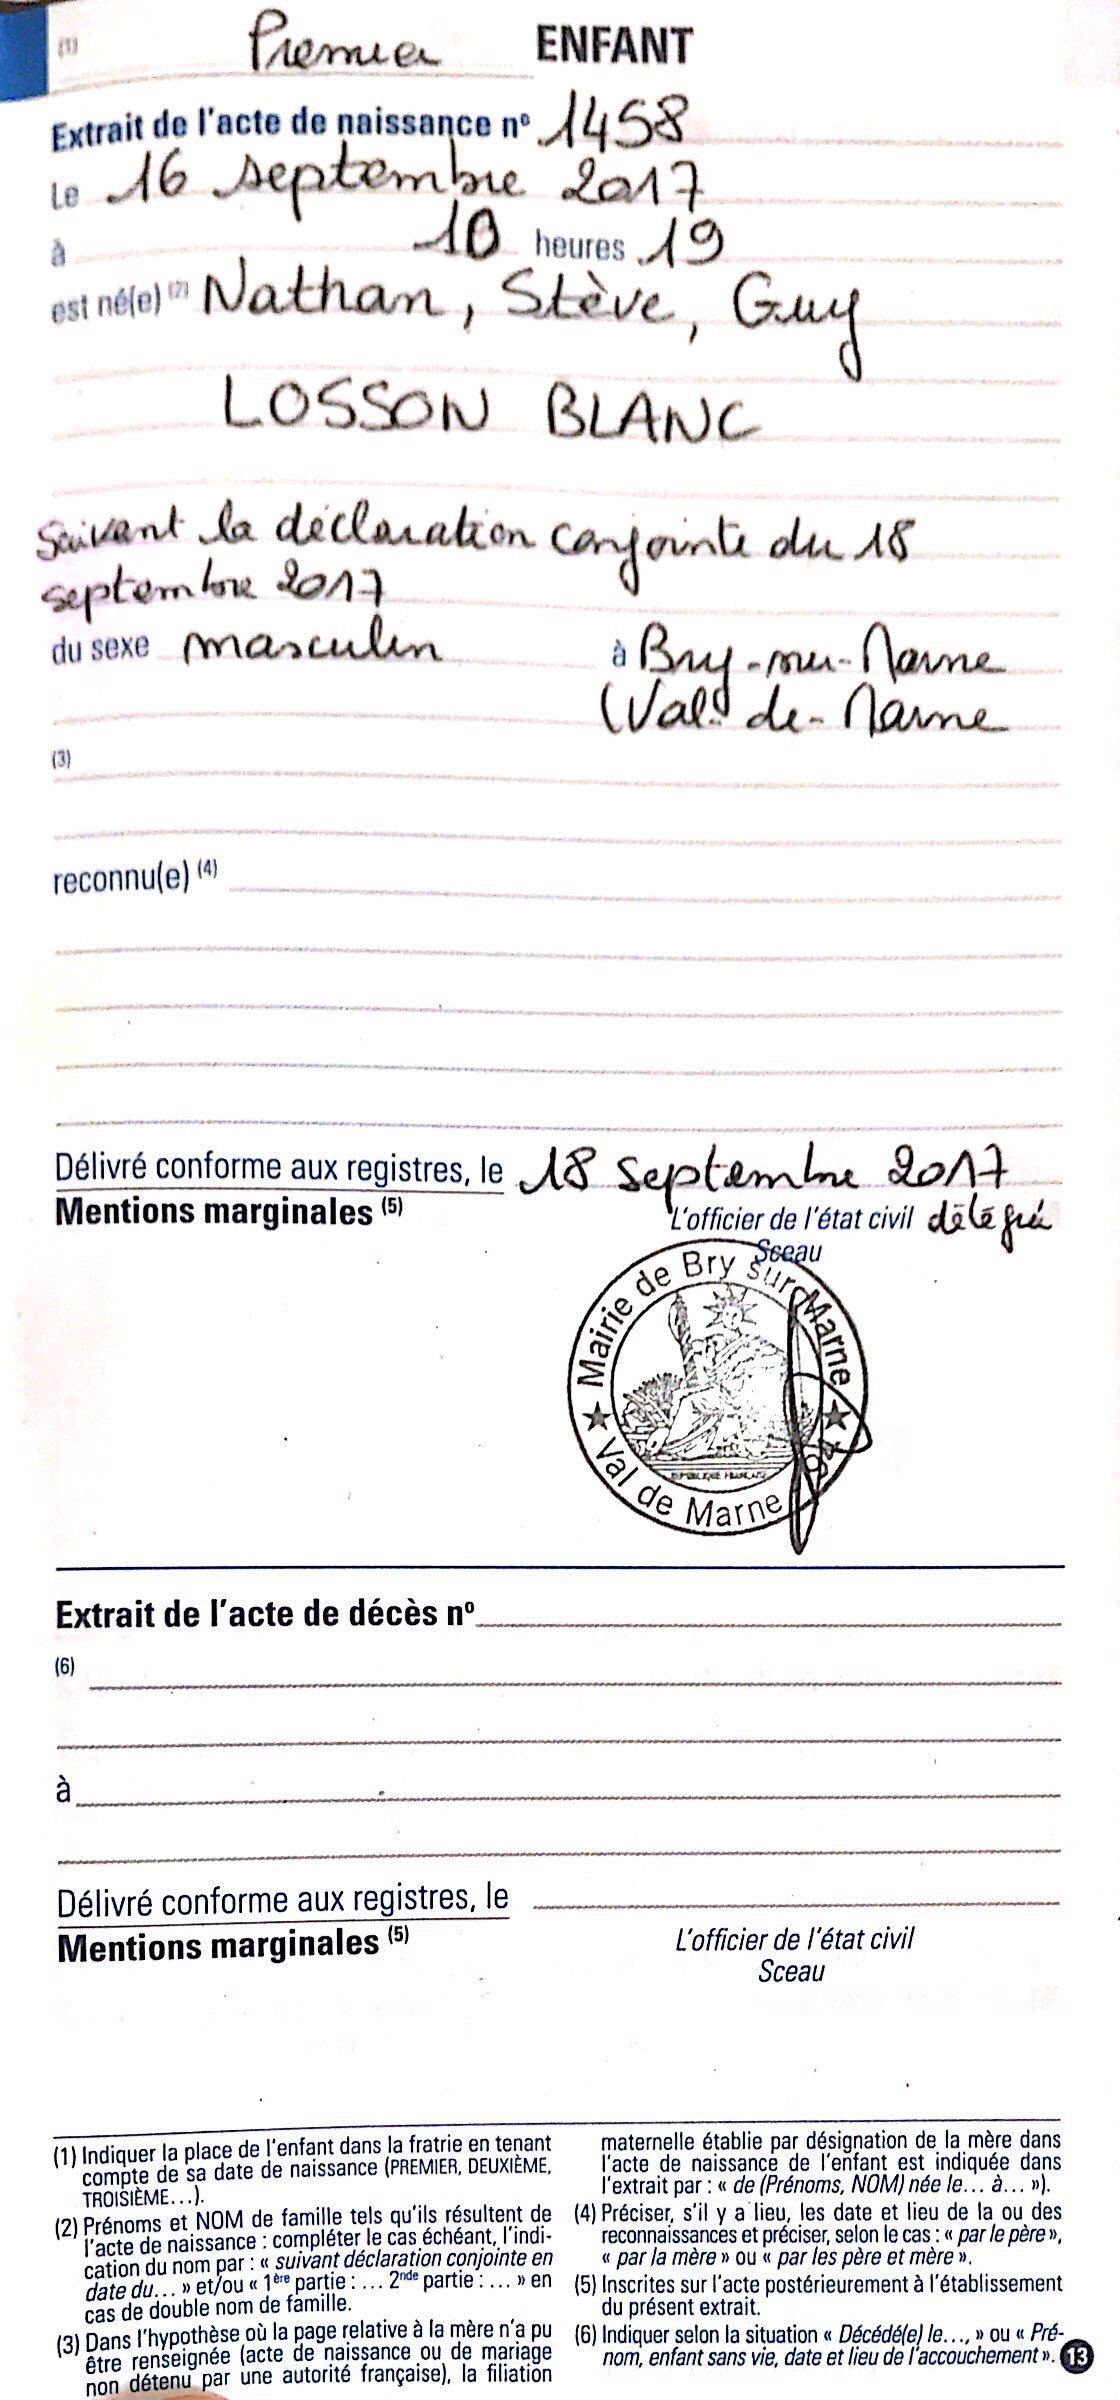 (1) Premier ENFANT
Extrait de l'acte de naissance nº 1458
Le 16 septembre 2017
à 10 heures 19
est né(e) (2) Nathan, Stève, Guy
LOSSON BLANC
Suivant la déclaration conjointe du 18
septembre 2017
du sexe masculin à Bry-sur-Marne
(Val-de-Marne
(3)
reconnu(e) (4)
Délivré conforme aux registres, le 18 septembre 2017
Mentions marginales (5)
L'officier de l'état civil délégué
Sceau
Mairie de Bry sur Marne
Val de Marne
REPUBLIQUE FRANÇAISE
Extrait de l'acte de décès nº
(6)
à
Délivré conforme aux registres, le
Mentions marginales (5)
L'officier de l'état civil
Sceau
(1) Indiquer la place de l'enfant dans la fratrie en tenant
compte de sa date de naissance (PREMIER, DEUXIÈME,
TROISIÈME…).
(2) Prénoms et NOM de famille tels qu'ils résultent de
l'acte de naissance : compléter le cas échéant, l'indi-
cation du nom par : « suivant déclaration conjointe en
date du… » et/ou « 1ère partie : … 2nde partie : … » en
cas de double nom de famille.
(3) Dans l'hypothèse où la page relative à la mère n'a pu
être renseignée (acte de naissance ou de mariage
non détenu par une autorité française), la filiation
maternelle établie par désignation de la mère dans
l'acte de naissance de l'enfant est indiquée dans
l'extrait par : « de (Prénoms, NOM) née le… à… »).
(4) Préciser, s'il y a lieu, les date et lieu de la ou des
reconnaissances et préciser, selon le cas : « par le père »,
« par la mère » ou « par les père et mère ».
(5) Inscrites sur l'acte postérieurement à l'établissement
du présent extrait.
(6) Indiquer selon la situation « Décédé(e) le…, » ou « Pré-
nom, enfant sans vie, date et lieu de l'accouchement ».
13